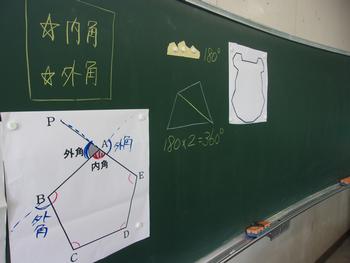 ☆内角
☆外角
180°
180×2=360°
P
A
外角
外角
内角
B
E
外角
C
D